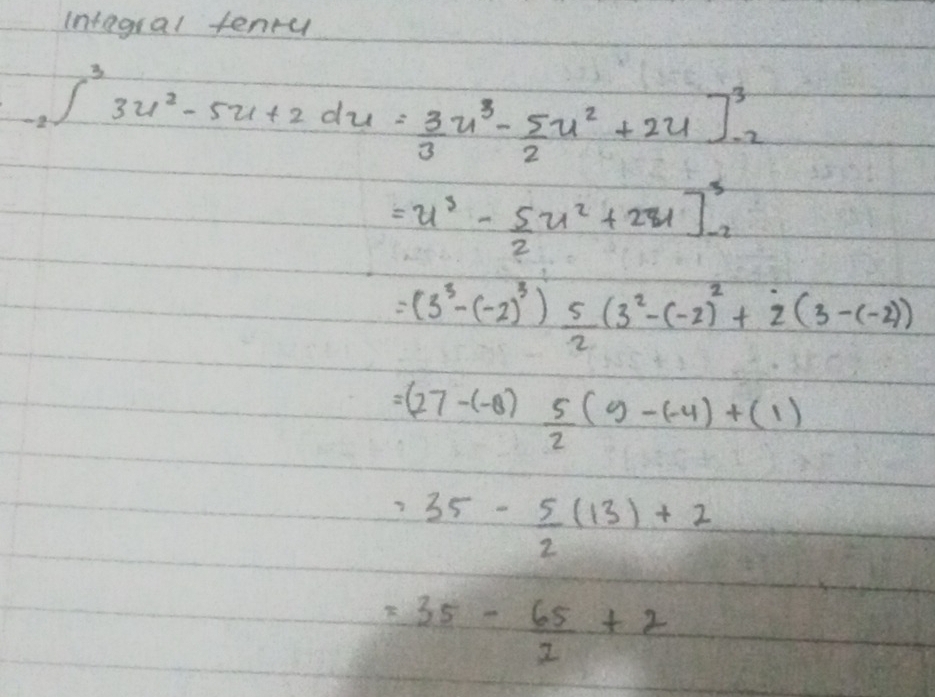 Integral tentu
₋₂∫³ 3u² - 5u + 2 du = 3/3 u³ - 5/2 u² + 2u ]³₋₂
= u³ - 5/2 u² + 2u ]³₋₂
= (3³ - (-2)³) 5/2 (3² - (-2)² + 2 (3 - (-2))
= (27 - (-8) 5/2 (9 - (-4) + (1)
= 35 - 5/2 (13) + 2
= 35 - 65/2 + 2